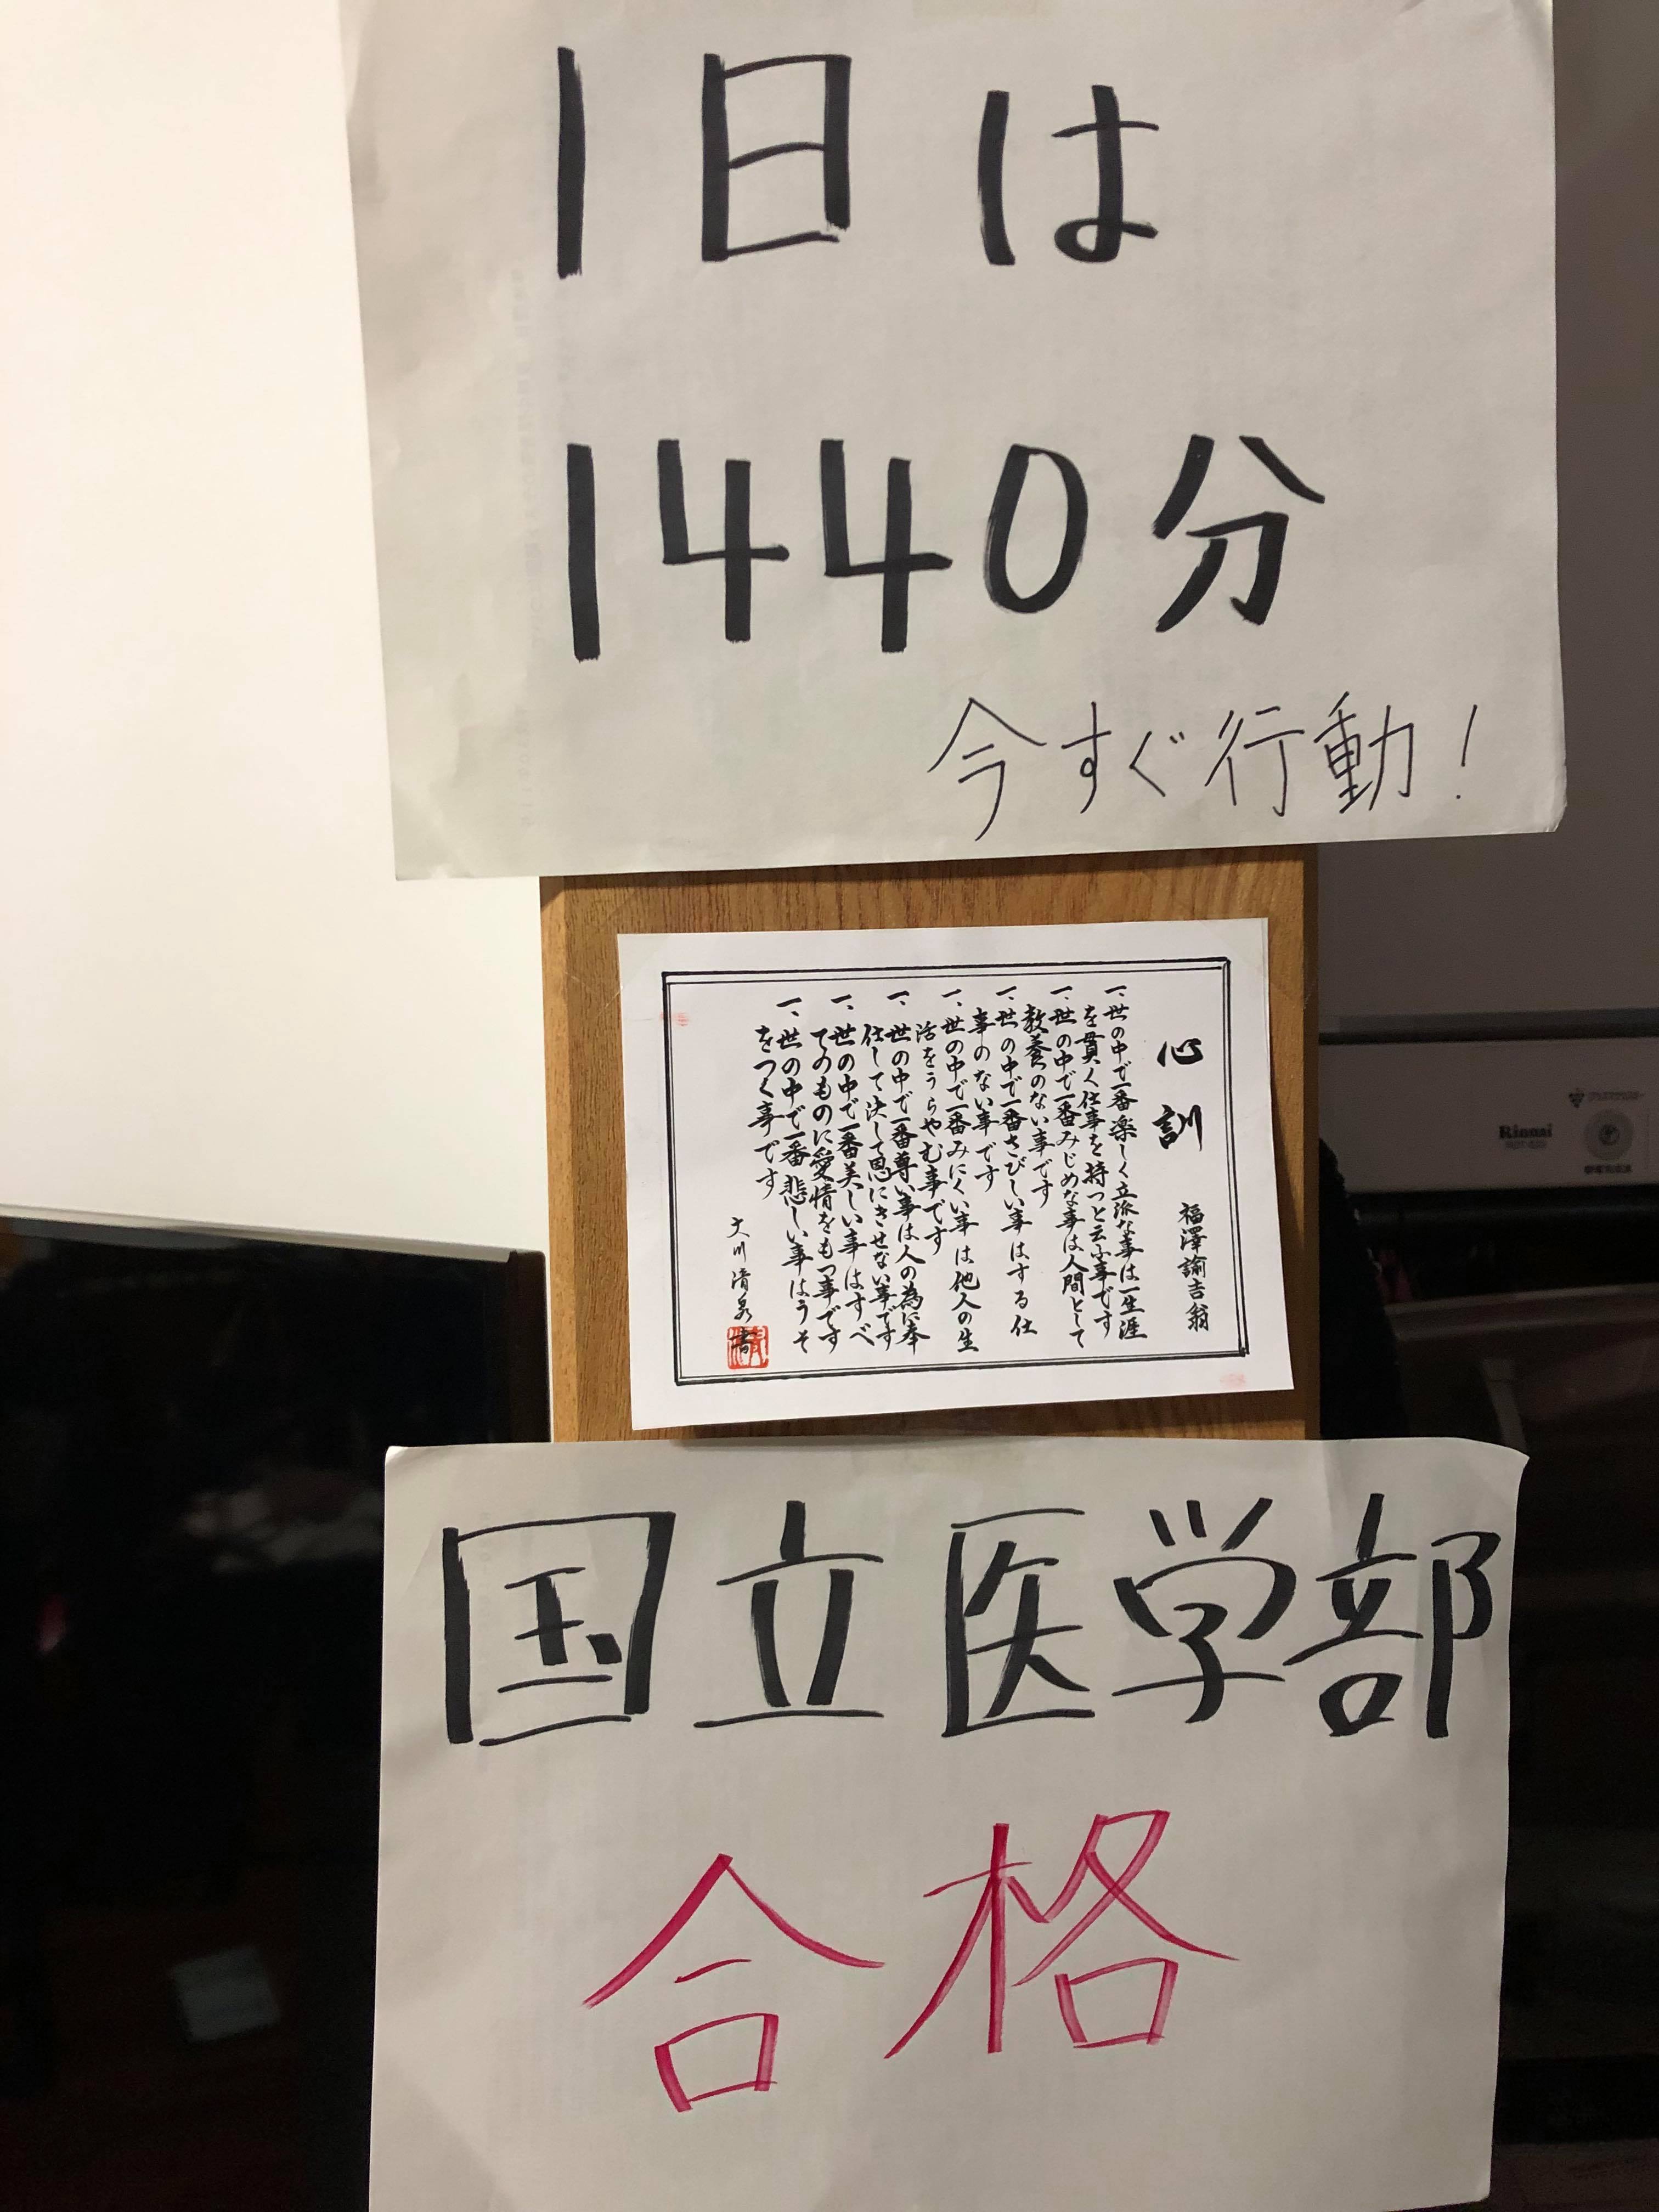 1日は
1440分
今すぐ行動!
心訓
福澤諭吉翁
一、世の中で一番楽しく立派な事は一生涯
を貫く仕事を持つと云ふ事です
一、世の中で一番みじめな事は人間として
教養のない事です
一、世の中で一番さびしい事はする仕
事のない事です
一、世の中で一番みにくい事は他人の生
活をうらやむ事です
一、世の中で一番尊い事は人の為に奉
仕して決して恩にきせない事です
一、世の中で一番美しい事はすべ
てのものに愛情をもつ事です
一、世の中で一番悲しい事はうそ
をつく事です
大川清泉書
Rinnai
国立医学部
合格